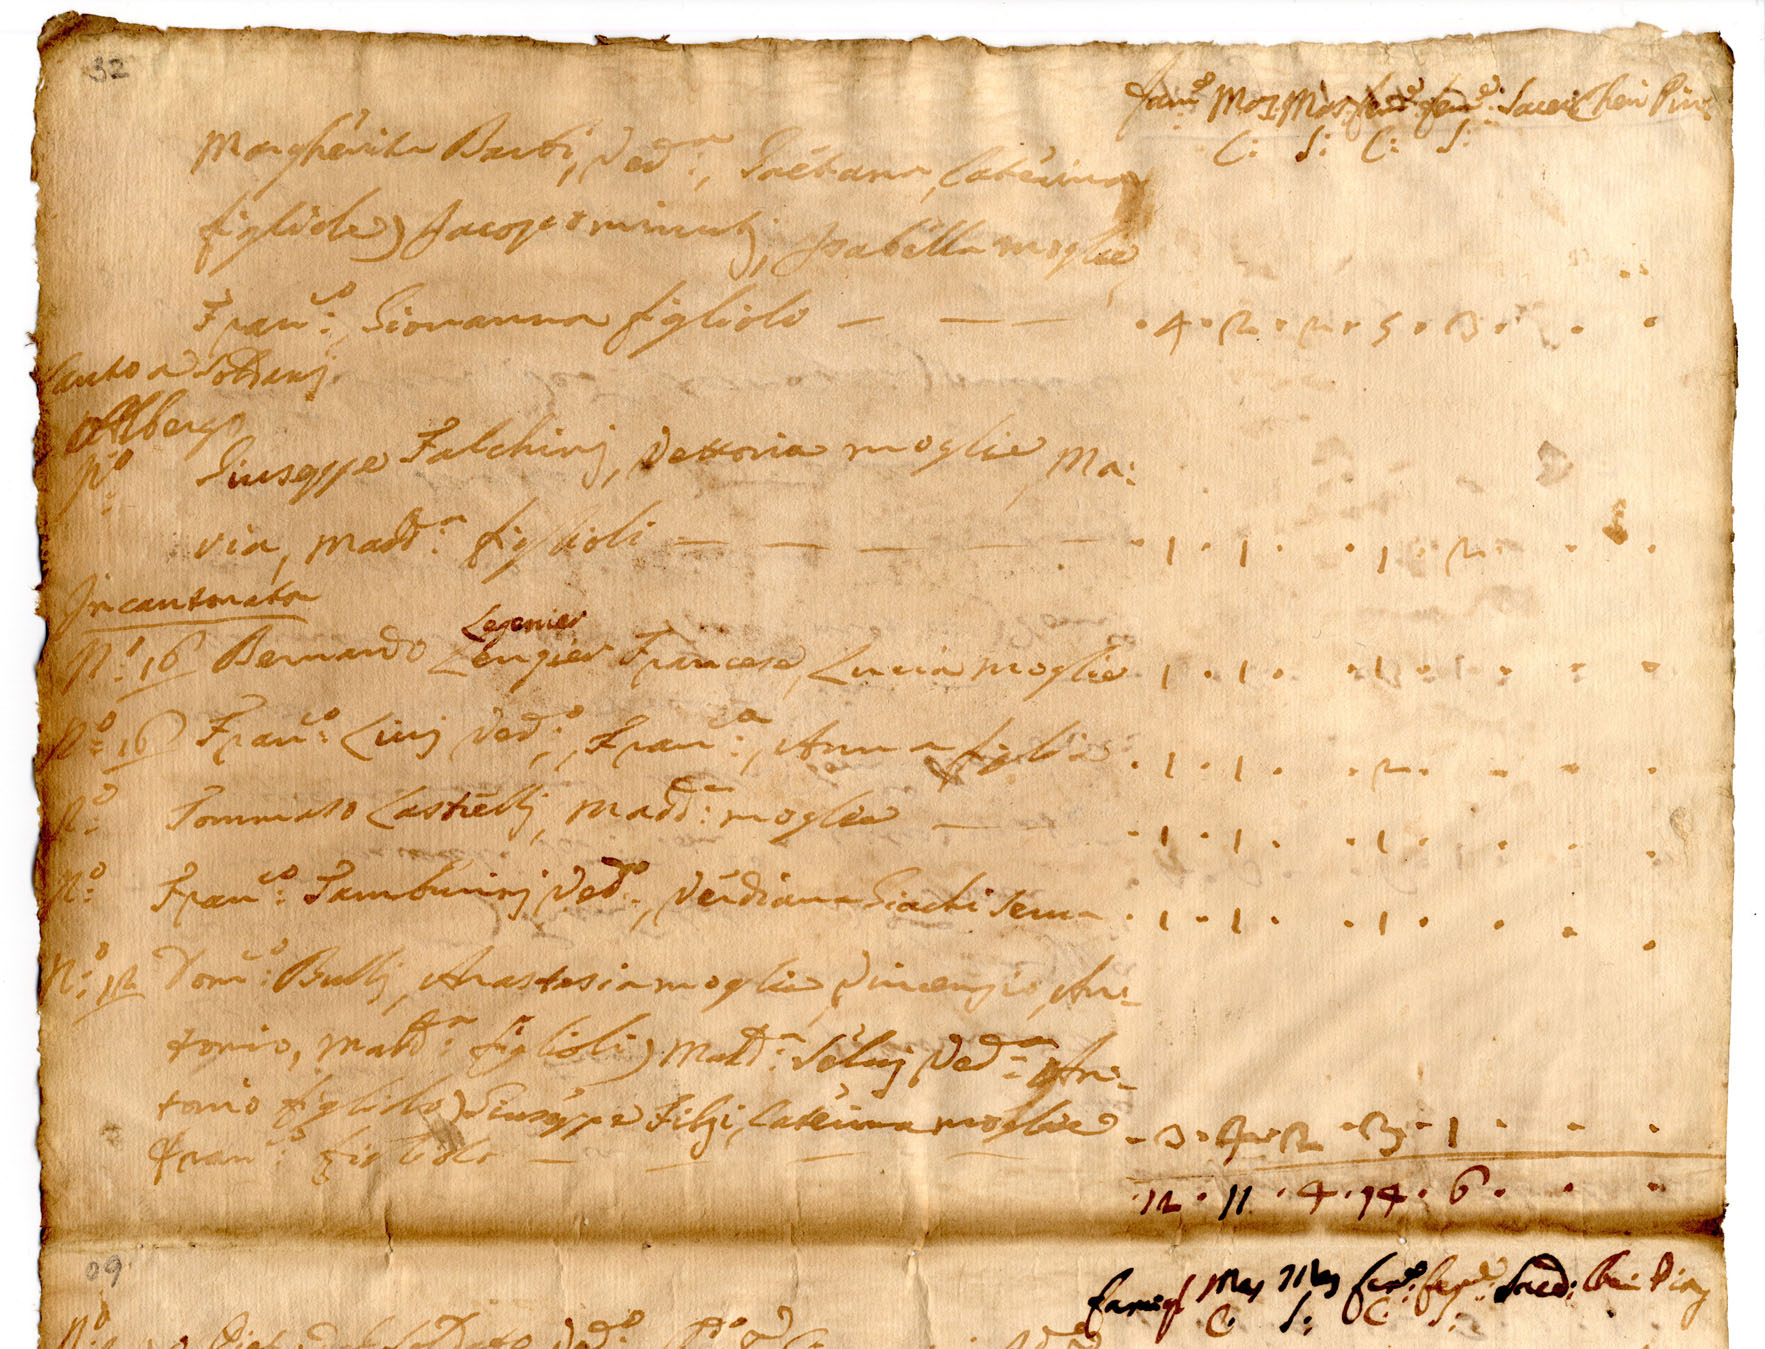 32
Fam:e Mas: Mas: fem:e fem:e Sacer: Cheri Pin
C: S: C: S:
Margherita Barbi, Ved:a, Gaetana, Caterina
figliole) Jacopo minutj, Isabella moglie
Fran:co, Giovanna figliolo — — — . 4 . 2 . 2 . 5 . 3 . . .
Canto a Soldanj.
Albergo
N:o Giuseppe Falchinj, Vettoria moglie, Ma:
ria, Madd:a figlioli — — — — — . 1 . 1 . . 1 . 2 . . .
Incantonata
Legenier
N:o 16 Bernardo Lengier Francese, Lucia moglie . 1 . 1 . . 1 . 1 . . .
N:o 16 Fran:co Ved:o, Fran:ca, Anna figlie . 1 . 1 . . 2 . . . .
N:o Tommaso Castellj, Madd:a moglie — . 1 . 1 . . 1 . . . .
N:o Fran:co Tamburinj Ved:o, Verdiana Giachi Serva . 1 . 1 . . 1 . . . .
N:o 12 Dom:co Bullj, Anastasia moglie, Vincenzio, An:
tonio, Madd:a figlioli) Madd:a Ved:a An:
tonio figliolo) Giuseppe Filzi, Caterina moglie . 3 . 4 . 2 . 3 . 1 . . .
Fran:co figliolo — — — —
. 12 . 11 . 4 . 14 . 6 . . .
09
Famigl Mas Mas fem:e fem:e Sacd: Cheri
C: S: C: S:
N:o